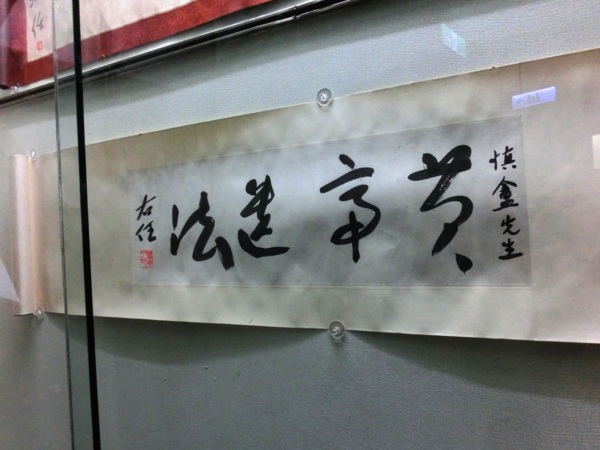 慎盦先生
黄帝遺法
右任